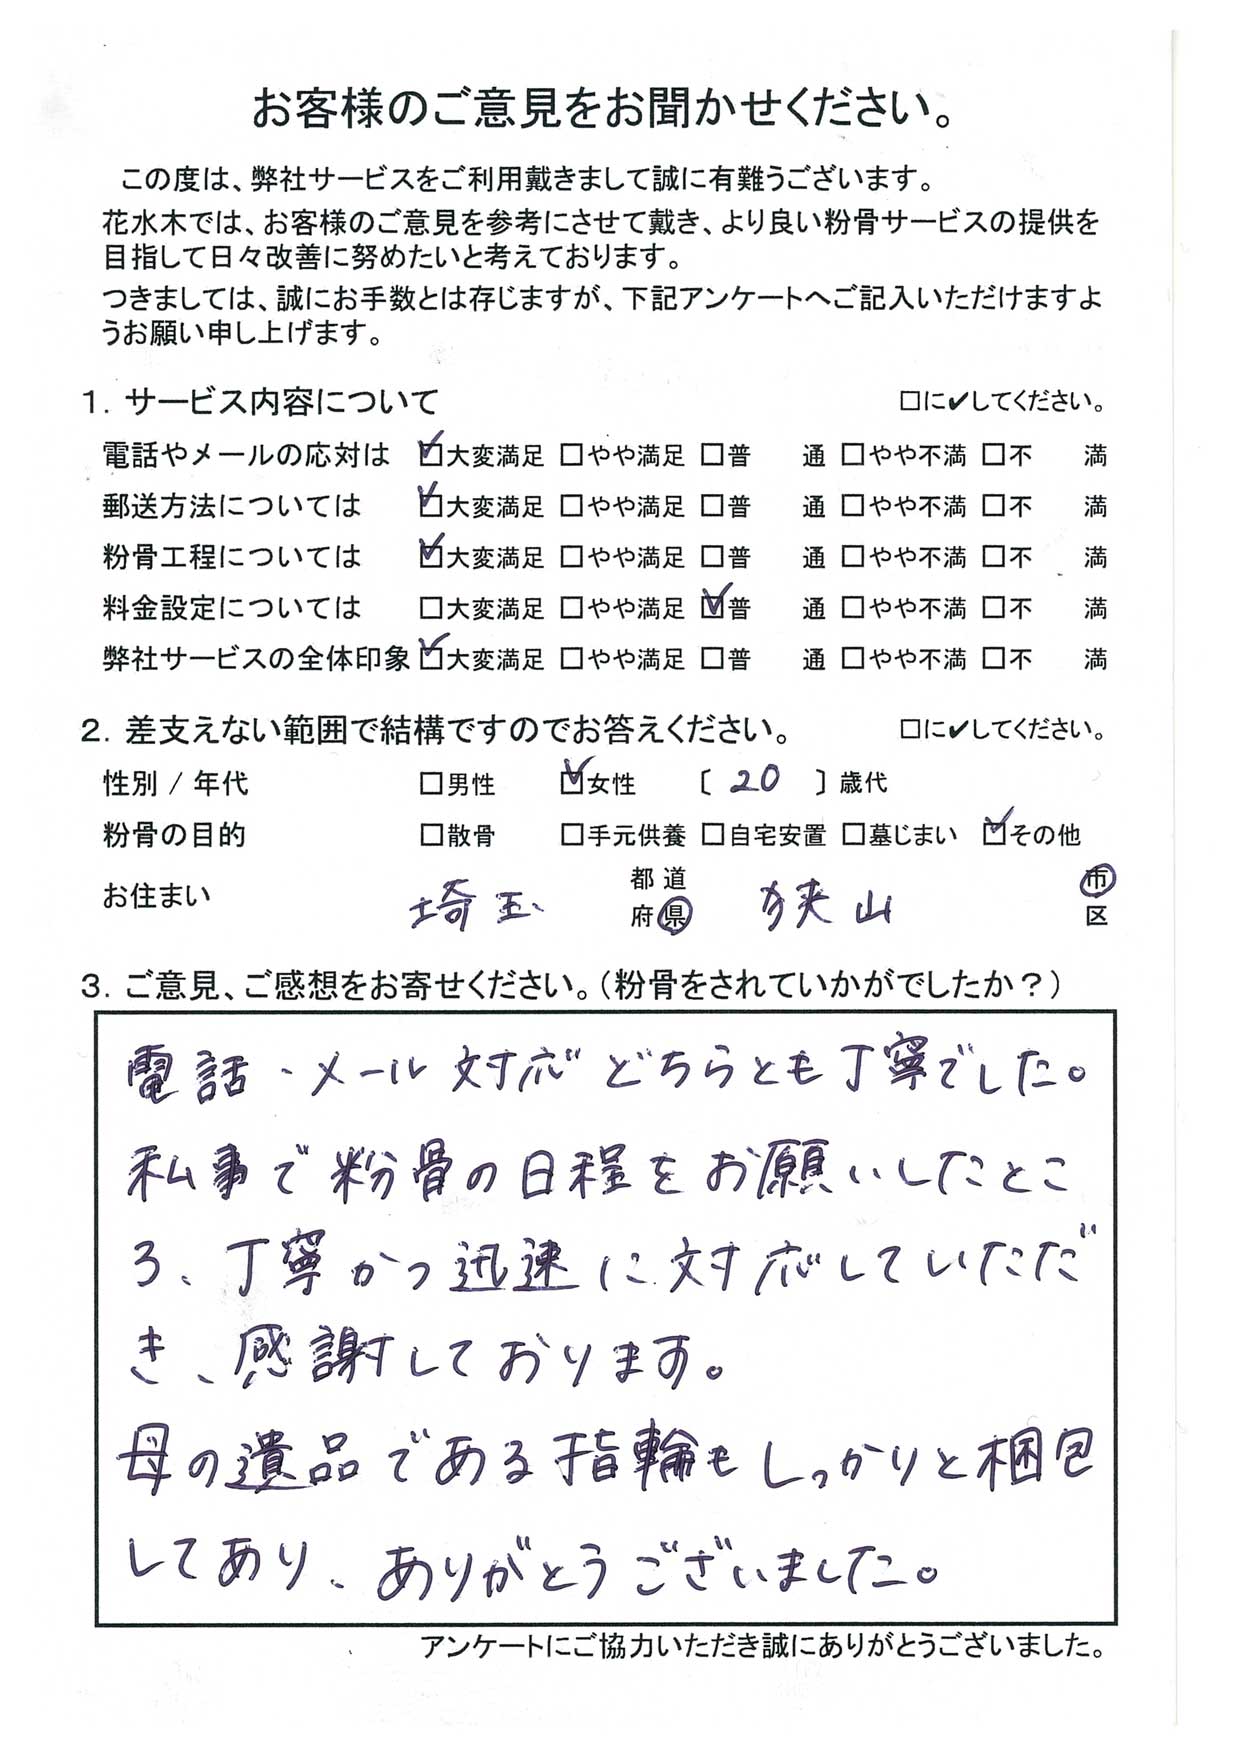 お客様のご意見をお聞かせください。
この度は、弊社サービスをご利用戴きまして誠に有難うございます。
花水木では、お客様のご意見を参考にさせて戴き、より良い粉骨サービスの提供を
目指して日々改善に努めたいと考えております。
つきましては、誠にお手数とは存じますが、下記アンケートへご記入いただけますよ
うお願い申し上げます。
1. サービス内容について □に✔してください。
電話やメールの応対は ☑大変満足 □やや満足 □普 通 □やや不満 □不 満
郵送方法については ☑大変満足 □やや満足 □普 通 □やや不満 □不 満
粉骨工程については ☑大変満足 □やや満足 □普 通 □やや不満 □不 満
料金設定については □大変満足 □やや満足 ☑普 通 □やや不満 □不 満
弊社サービスの全体印象 ☑大変満足 □やや満足 □普 通 □やや不満 □不 満
2. 差支えない範囲で結構ですのでお答えください。 □に✔してください。
性別 / 年代 □男性 ☑女性 〔 20 〕歳代
粉骨の目的 □散骨 □手元供養 □自宅安置 □墓じまい ☑その他
お住まい 埼玉 都道府県 狭山 市区
3. ご意見、ご感想をお寄せください。（粉骨をされていかがでしたか？）
電話・メール対応どちらとも丁寧でした。
私事で粉骨の日程をお願いしたとこ
ろ、丁寧かつ迅速に対応していただ
き、感謝しております。
母の遺品である指輪もしっかりと梱包
してあり、ありがとうございました。
アンケートにご協力いただき誠にありがとうございました。